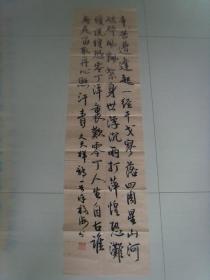 辛苦遭逢起一经干戈寥落四周星山河
破碎風飄絮身世浮沉雨打萍惶恐灘
頭說惶恐零丁洋裏歎零丁人生自古誰
無死留取丹心照汗青 文天祥